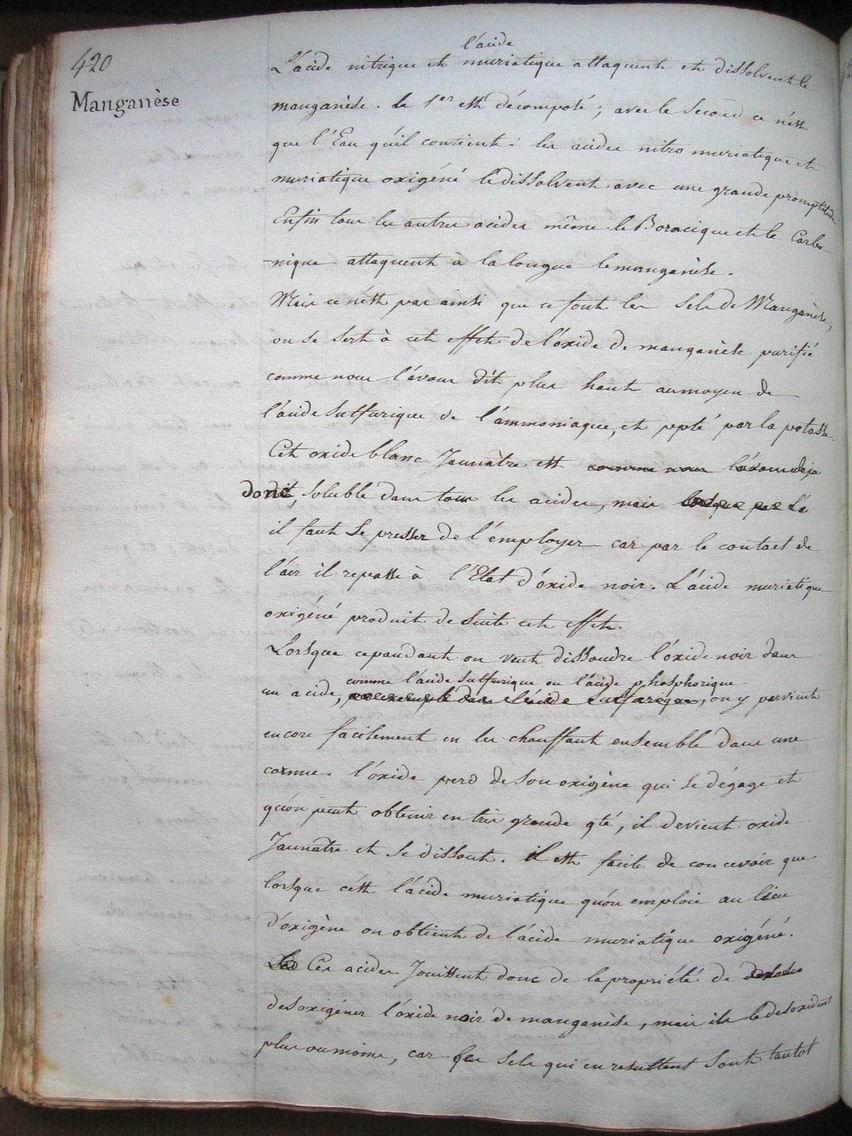 420
Manganèse
L'acide nitrique et l'acide muriatique attaquent et dissolvent le
manganèse. Le 1er est décomposé; avec le second ce n'est
que l'Eau qu'il contient. les acides nitro muriatique et
muriatique oxigéné le dissolvent avec une grande promptitude
Enfin tous les autres acides même le Boracique et le Carbo-
-nique attaquent à la longue le manganèse.
Mais ce n'est pas ainsi que se font les Sels de Manganèse,
on se sert à cet effet de l'oxide de manganèse purifié
comme nous l'avons dit plus haut au moyen de
l'acide sulfurique de l'ammoniaque, et pepté par la potasse.
Cet oxide blanc Jaunâtre est comme nous l'avons déja
donc, soluble dans tous les acides, mais lorsque par la
il faut se presser de l'employer car par le contact de
l'air il repasse à l'Etat d'oxide noir. L'acide muriatique
oxigéné produit de suite cet effet.
Lorsque cependant on veut dissoudre l'oxide noir dans
comme l'acide sulfurique ou l'acide phosphorique
un acide, par exemple dans l'acide sulfurique, on y parvient
encore facilement en les chauffant ensemble dans une
cornue. l'oxide perd de son oxigène qui se dégage et
qu'on peut obtenir en très grande qté, il devient oxide
Jaunâtre et se dissout. il est facile de concevoir que
lorsque c'est l'acide muriatique qu'on emploie au lieu
d'oxigène on obtient de l'acide muriatique oxigéné.
Ces acides Jouissent donc de la propriété de
desoxigéner l'oxide noir de manganèse, mais ils le desoxident
plus ou moins, car les sels qui en resultent sont tantot